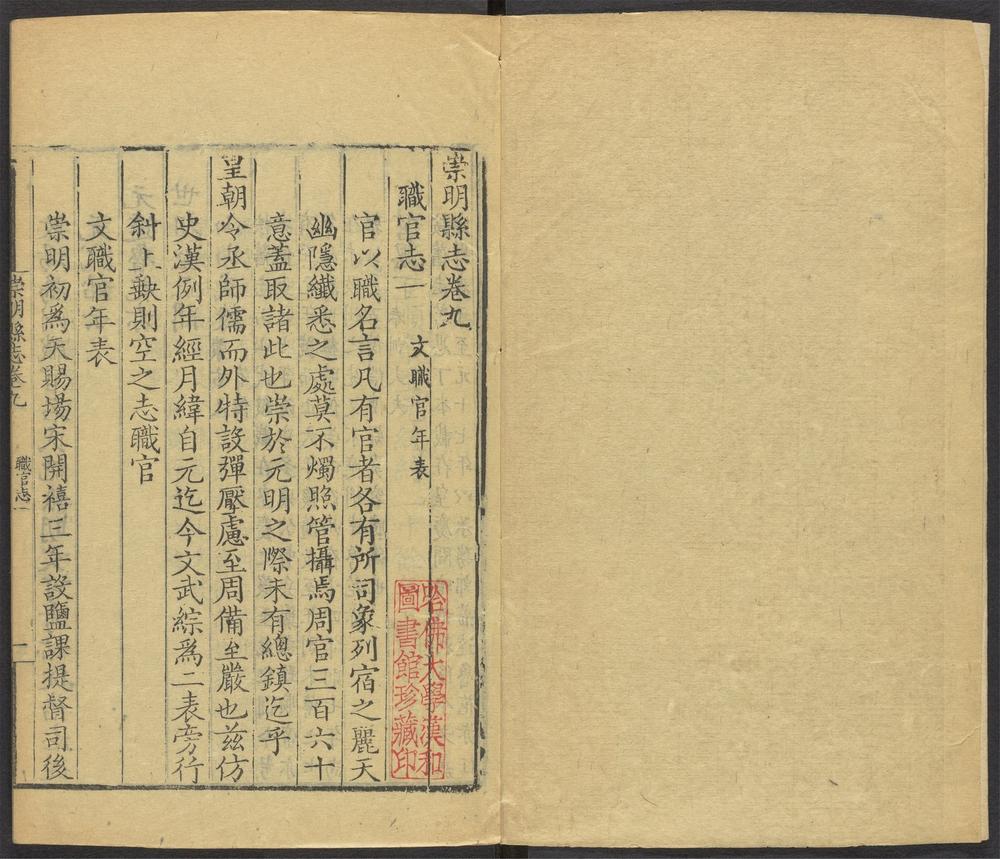 崇明縣志卷九
職官志一　文職官年表
官以職名言凡有官者各有所司象列宿之麗天
幽隱纖悉之處莫不燭照管攝焉周官三百六十
意蓋取諸此也崇於元明之際未有總鎮迄乎
皇朝令丞師儒而外特設彈壓慮至周備至嚴也茲仿
史漢例年經月緯自元迄今文武綜爲二表旁行
斜上缺則空之志職官
文職官年表
崇明初爲天賜場宋開禧三年設鹽課提督司後
崇明縣志卷九　職官志一　一
哈佛大學漢和
圖書館珍藏印